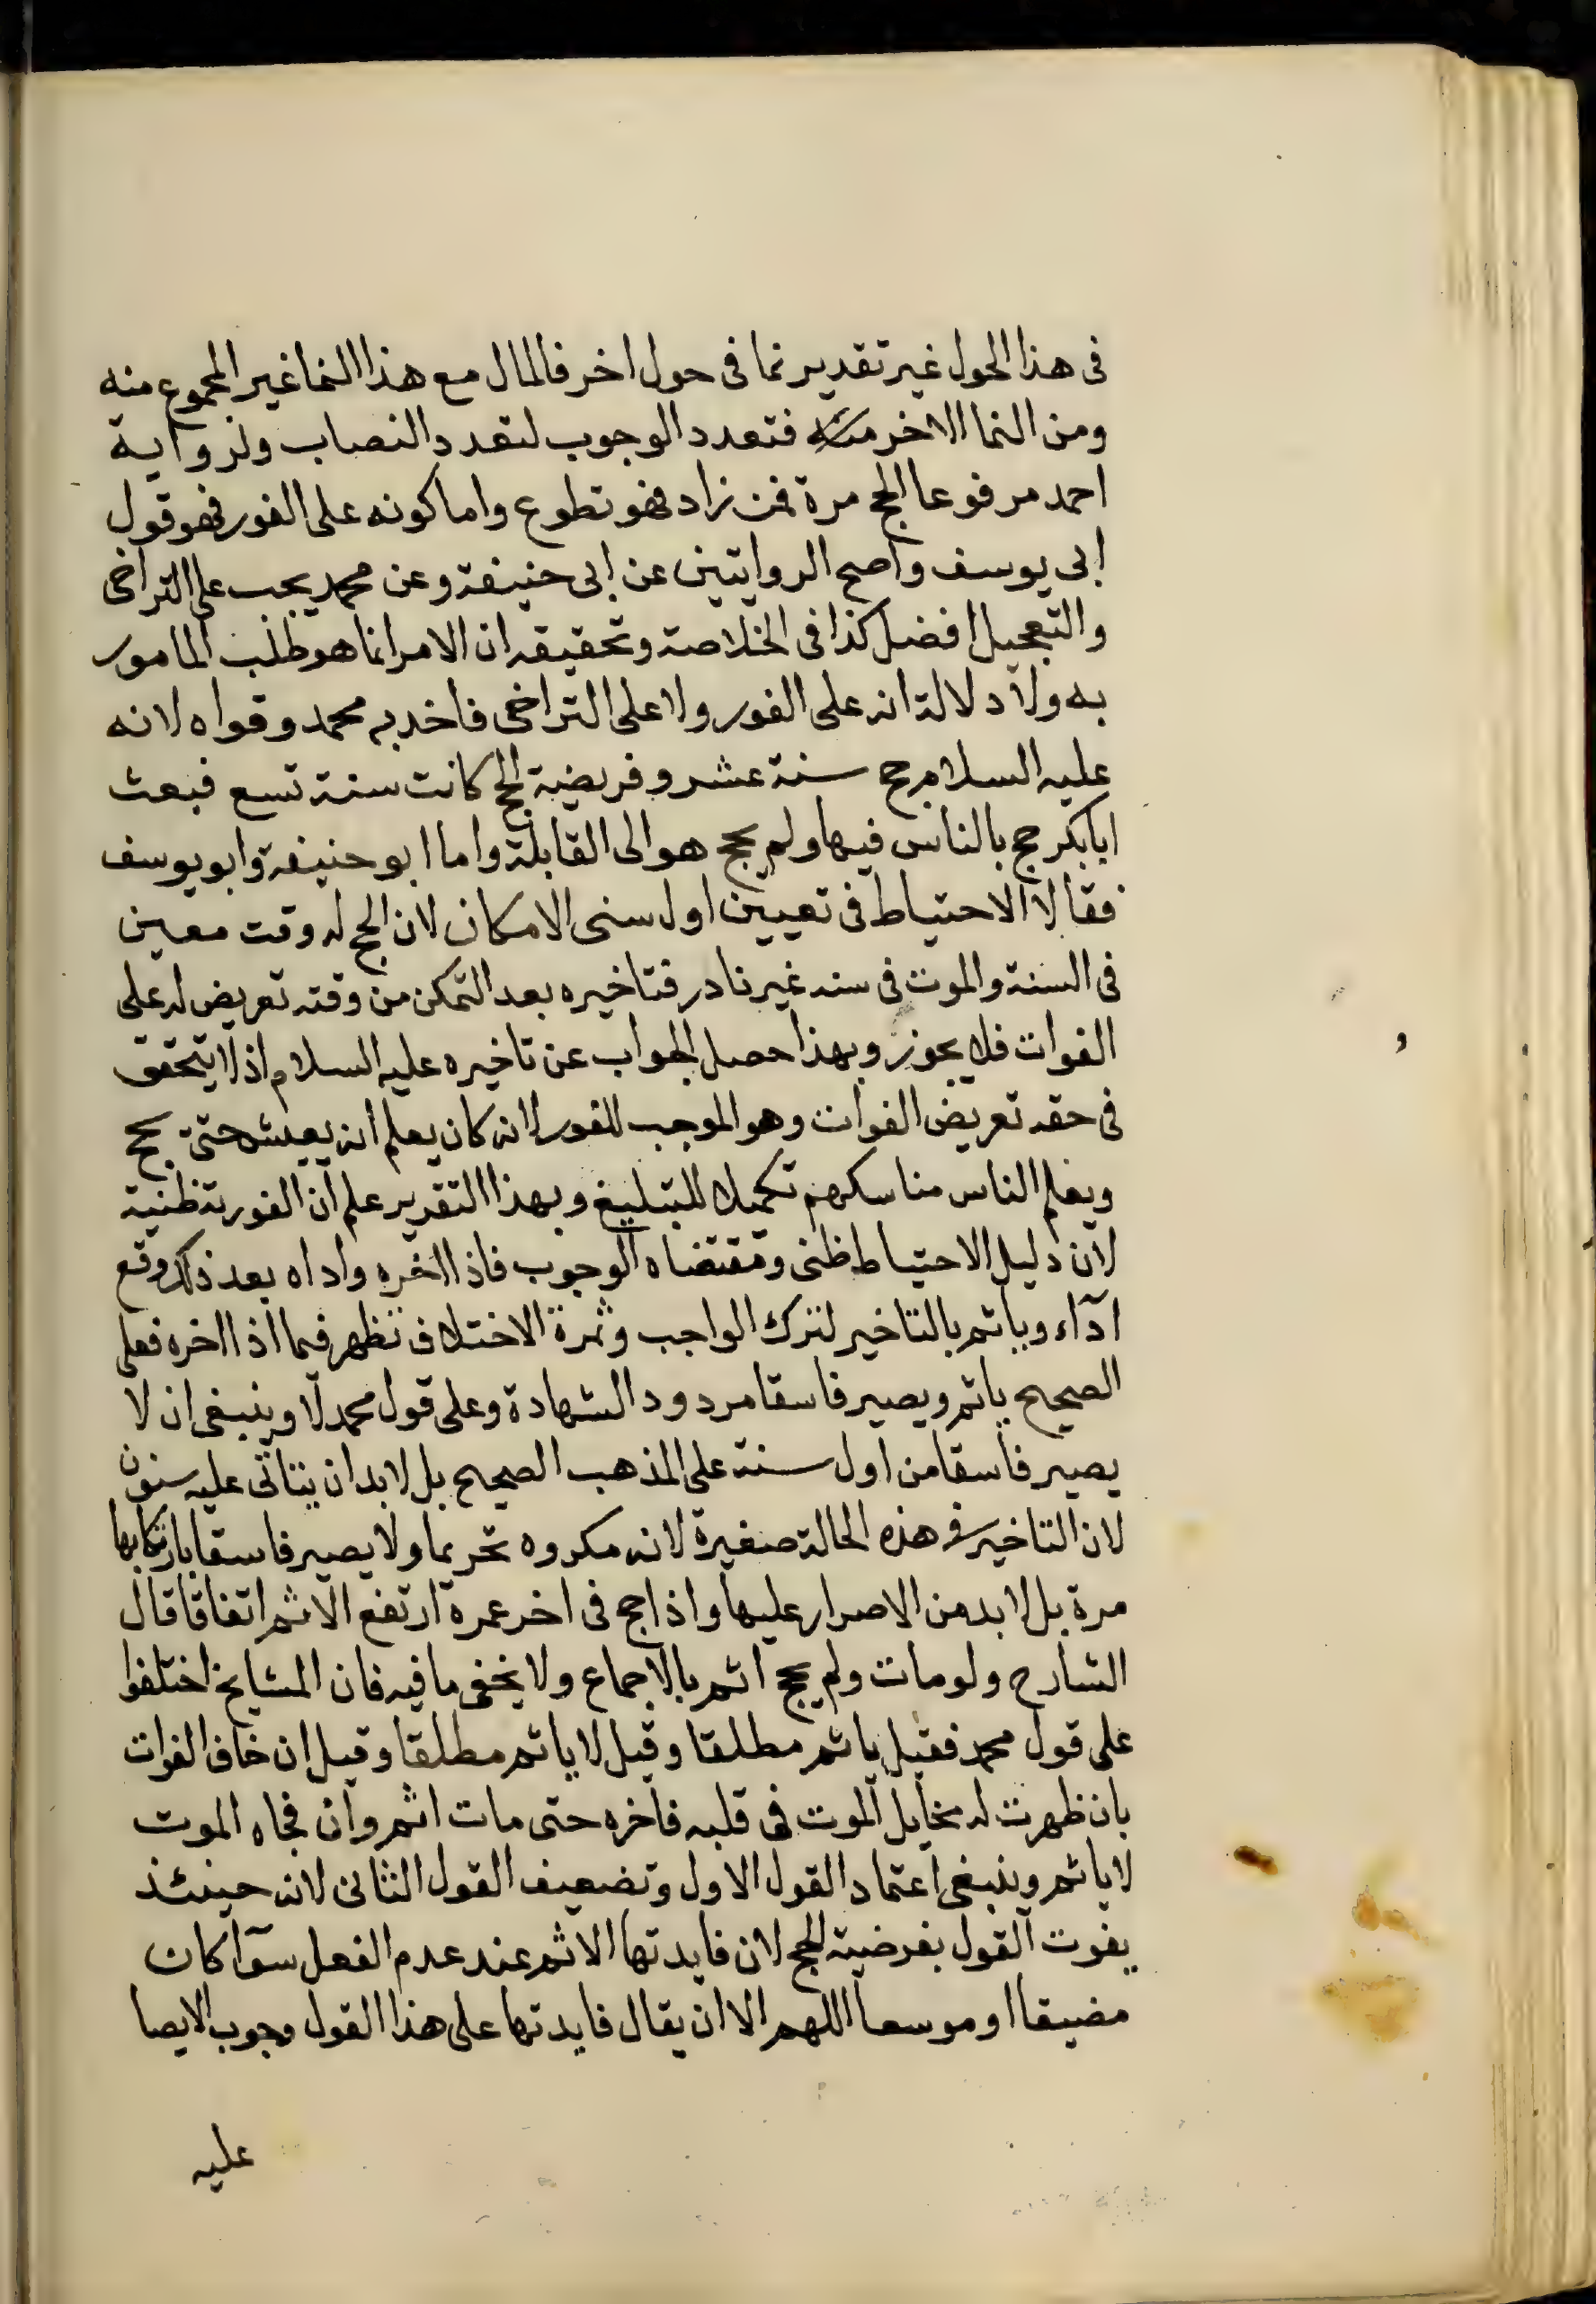 فى هذا الحول غير تقدير نما فى حول اخر فالمال مع هذا النما غير المجموع منه
ومن النما الاخر فتعدد الوجوب لتعدد النصاب ولرواية
احمد مرفوعا الحج مرة فمن زاد فهو تطوع واما كونه على الفور فهو قول
ابى يوسف واصح الروايتين عن ابى حنيفة وعن محمد يجب على التراخى
والتعجيل افضل كذا فى الخلاصة وتحقيقه ان الامر انما هو طلب المامور
به ولا دلالة له على الفور ولا على التراخى فاخذ به محمد وقواه لانه
عليه السلام حج سنة عشر وفريضة الحج كانت سنة تسع فبعث
ابا بكر حج بالناس فيها ولم يحج هو الى القابلة واما ابو حنيفة وابو يوسف
فقالا الاحتياط فى تعيين اول سنى الامكان لان الحج له وقت معين
فى السنة والموت فى سنه غير نادر فتاخيره بعد التمكن من وقته تعريض له على
الفوات فلا يجوز وبهذا حصل الجواب عن تاخيره عليه السلام اذ لا يتحقق
فى حقه تعريض الفوات وهو الموجب للفور لانه كان يعلم انه يعيش حتى يحج
ويعلم الناس مناسكهم تكميلا للتبليغ وبهذا التقرير علم ان الفورية ظنية
لان دليل الاحتياط ظنى ومقتضاه الوجوب فاذا اخره واداه بعد ذلك وقع
آداء وياثم بالتاخير لترك الواجب وثمرة الاختلاف تظهر فيما اذا اخره فعلى
الصحيح ياثم ويصير فاسقا مردود الشهادة وعلى قول محمد لا وينبغى ان لا
يصير فاسقا من اول سنة على المذهب الصحيح بل لا بد ان يتاتى عليه سنون
لان التاخير فى هذه الحالة صغيرة لانه مكروه تحريما ولا يصير فاسقا بارتكابها
مرة بل لا بد من الاصرار عليها واذا حج فى اخر عمره ارتفع الاثم اتفاقا قال
الشارح ولو مات ولم يحج اثم بالاجماع ولا يخفى ما فيه فان المشايخ اختلفوا
على قول محمد فقيل ياثم مطلقا وقيل لا ياثم مطلقا وقيل ان خاف الفوات
بان ظهرت له مخايل الموت فى قلبه فاخره حتى مات اثم وان فجاه الموت
لا ياثم وينبغى اعتماد القول الاول وتضعيف القول الثانى لانه حينئذ
يفوت القول بفرضية الحج لان فايدتها الاثم عند عدم الفعل سوآ كان
مضيقا او موسعا اللهم الا ان يقال فايدتها على هذا القول وجوب الايصا
عليه